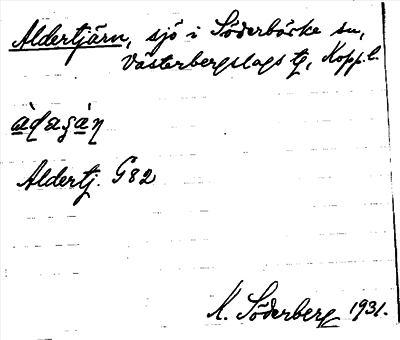 Aldertjärn, sjö i Söderbärke sn,
Västerbergslags tg, Kopp. l.
àdagàn
Aldertj. G82
K. Söderberg 1931.